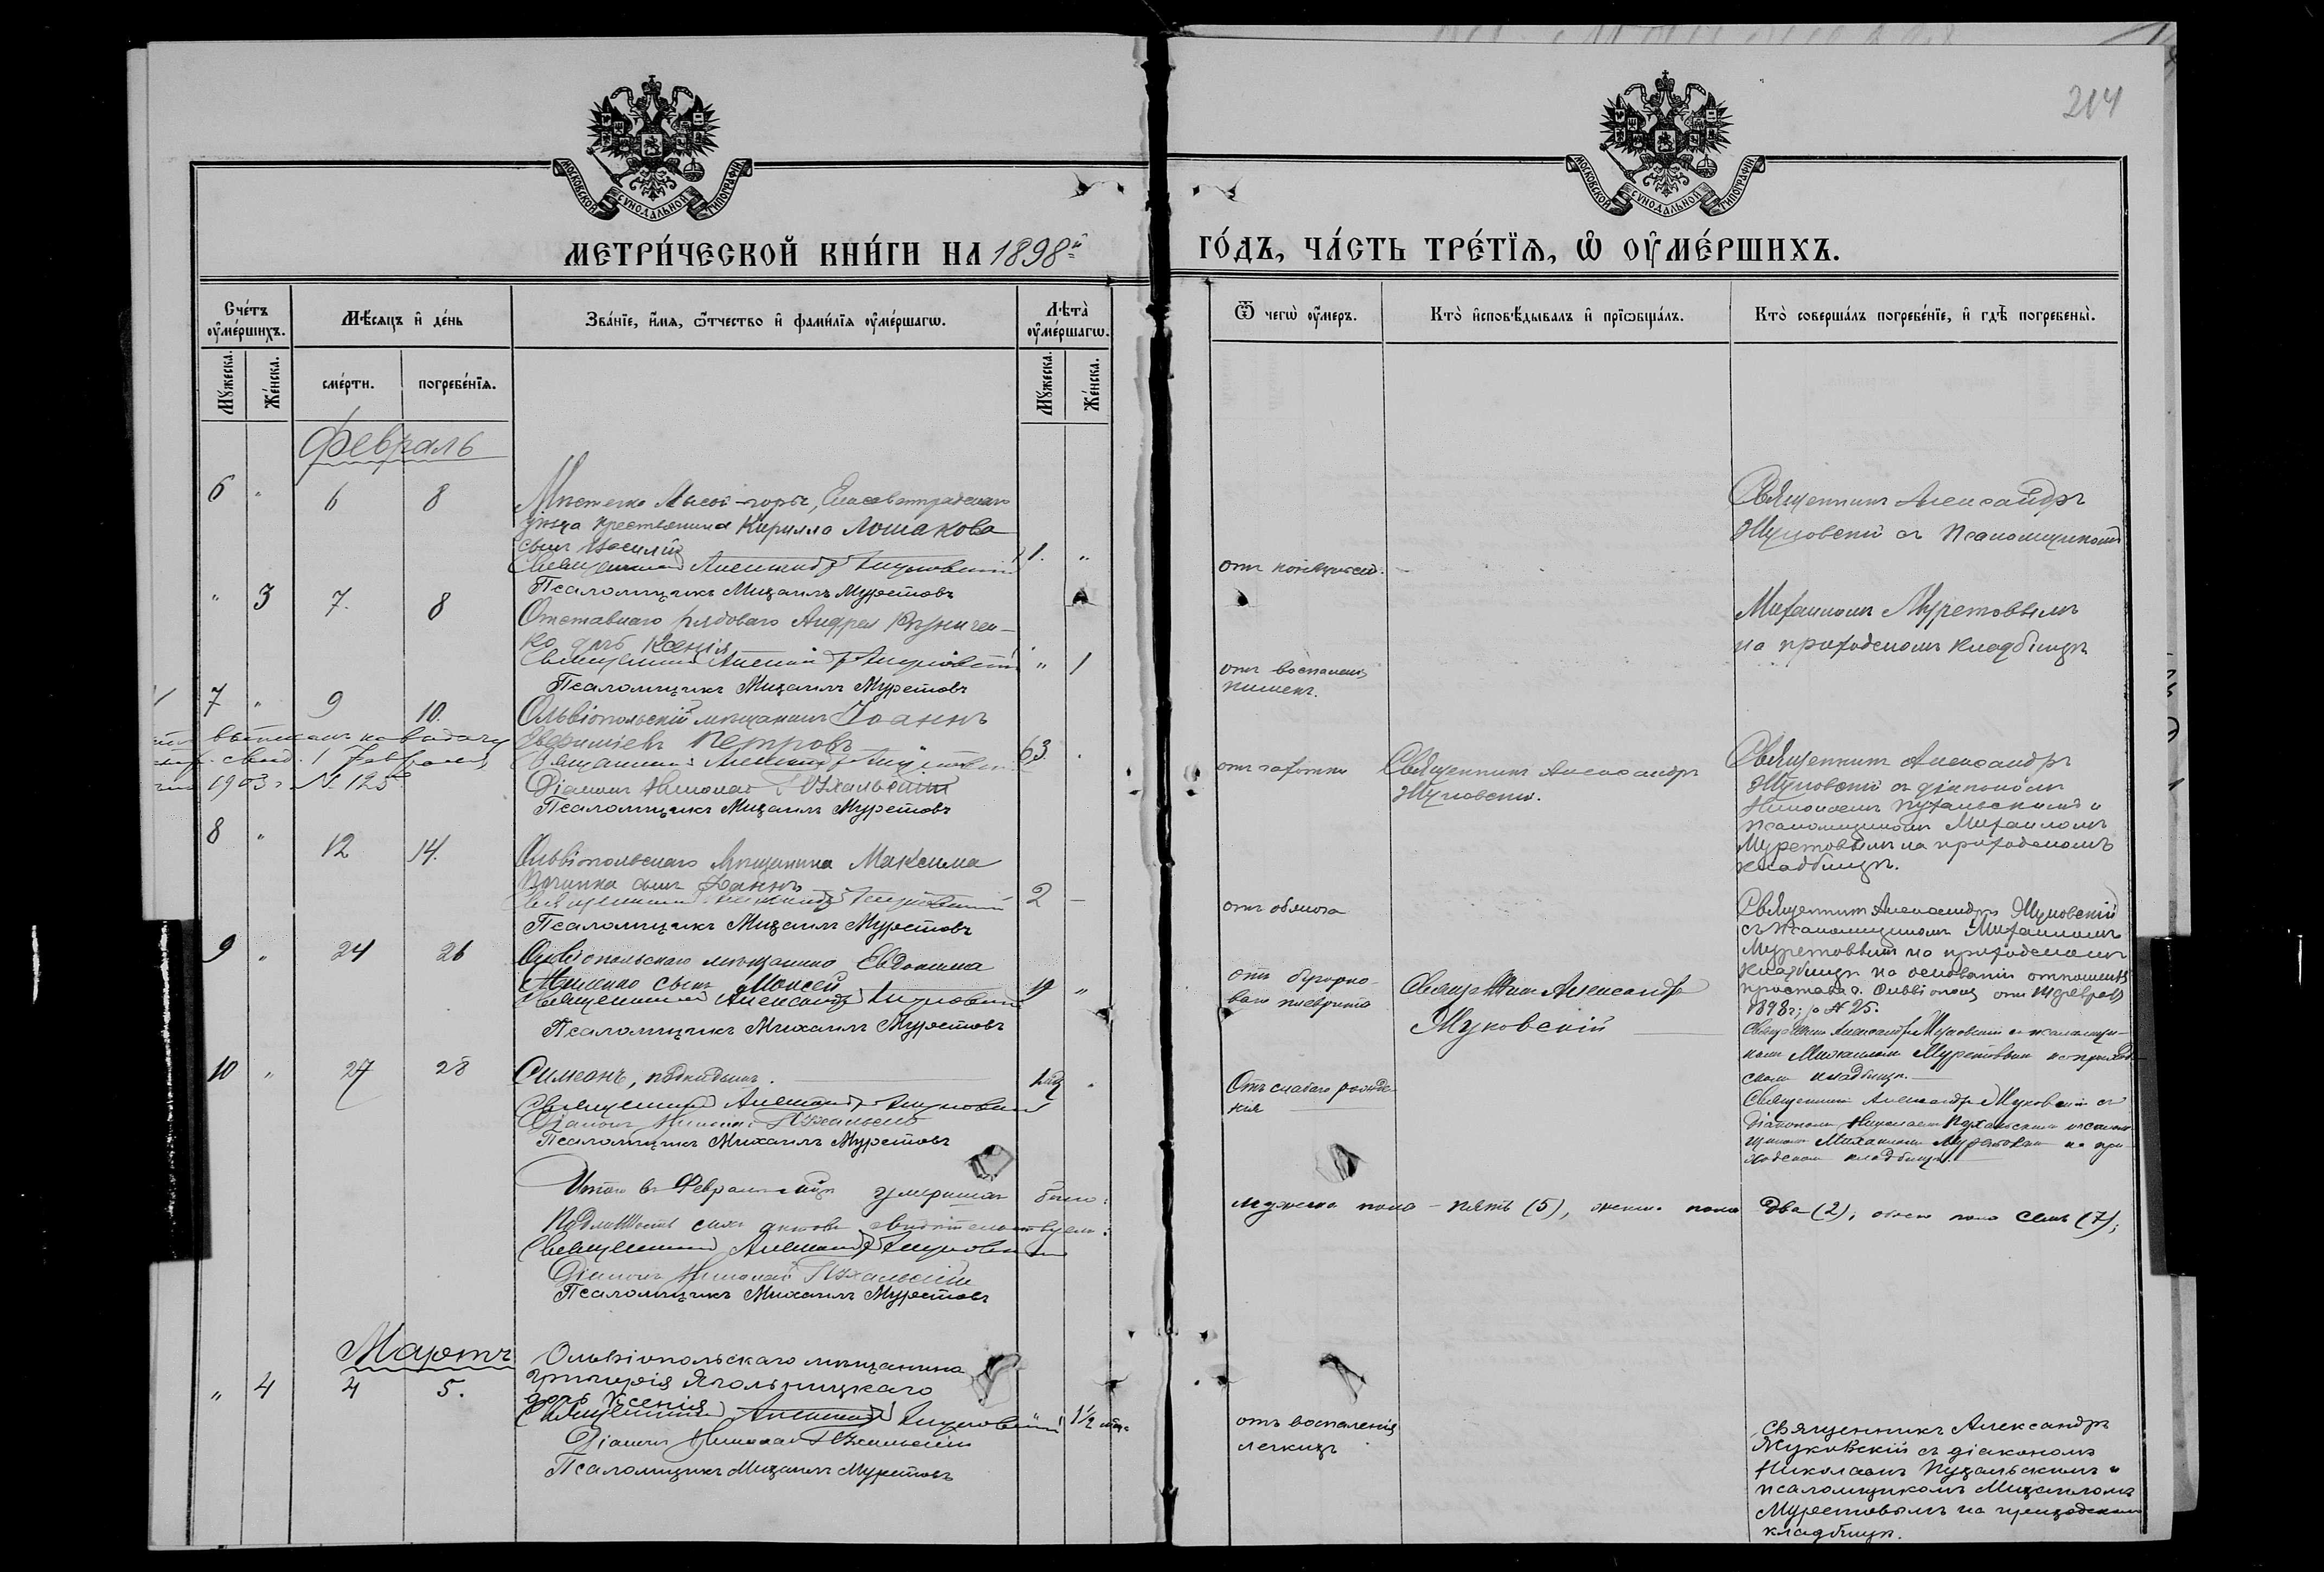 214
МОСКОВСКОЙ СѴНОДАЛЬНОЙ ТИПОГРАФІИ
МОСКОВСКОЙ СѴНОДАЛЬНОЙ ТИПОГРАФІИ
МЕТРИ́ЧЕСКОЙ КНИ́ГИ НА 1898й
ГО́ДЪ, ЧА́СТЬ ТРЕ́ТЇѦ, Ѡ ОУ҆МЕ́РШИХЪ.
Сче́тъ оу҆ме́ршихъ.
Мѣ́сяцъ и҆ де́нь
Зва́нїе, и҆́мѧ, ѻ҆́тчество и҆ фами́лїѧ оу҆ме́ршагѡ.
Лѣта̀ оу҆ме́ршагѡ.
Ѿ чегѡ̀ оу҆́меръ.
Кто̀ и҆сповѣ́дывалъ и҆ прїѡбща́лъ.
Кто̀ соверша́лъ погребе́нїе, и҆ гдѣ̀ погребены̀.
Мꙋ́жеска.
Же́нска.
сме́рти.
погребе́нїѧ.
Мꙋ́жеска.
Же́нска.
Февраль
6 " 6 8
Мѣстечка Лысой-горы, Елисаветградскаго
уѣзда крестьянина Кирилла Лошакова
сынъ Василій 1. "
Священникъ Александръ Жуковскій
Псаломщикъ Михаилъ Муретовъ
Священникъ Александръ
Жуковскій съ псаломщикомъ
" 3 7. 8
Отставнаго рядоваго Андрея
ко дочь Ксенія
Священникъ Алексанdръ Жуковскій " 1
Псаломщикъ Михаилъ Муретовъ
отъ воспаленія
Михаиломъ Муретовымъ
на приходскомъ кладбищѣ
7 " 9 10.
Ольвіопольскій мѣщанинъ Іоаннъ
Евфиміевъ Петровъ 63
Священникъ Александръ Жуковскій
Діаконъ Николай Пухальскій
Псаломщикъ Михаилъ Муретовъ
выпиcанъ на выдачу
свид. 1 Февраля
1903 г. № 125
отъ чахотки
Священникъ Александръ
Жуковскій.
Священникъ Александръ
Жуковскій съ діакономъ
Николаемъ Пухальскимъ и
псаломщикомъ Михаиломъ
Муретовымъ на приходскомъ
кладбищѣ.
8 " 12 14.
Ольвіопольскаго мѣщанина Максима
сынъ Іоаннъ 2 –
Священникъ Александръ Жуковскій
Псаломщикъ Михаилъ Муретовъ
Священникъ Александръ Жуковскій
съ псаломщикомъ Михаиломъ
Муретовымъ на приходскомъ
кладбищѣ на основаніи отношенія
пристава г. Ольвіополя отъ 14 февраля
1898 г. за № 25.
9 " 24 26
Ольвіопольскаго мѣщанина Евдокима
сынъ Моисей
Священникъ Александръ Жуковскій
Псаломщикъ Михаилъ Муретовъ
отъ бугорко-
ваго плеврита
Священникъ Александръ
Жуковскій
Священникъ Александръ Жуковскій съ псаломщи-
комъ Михаиломъ Муретовымъ на приход-
скомъ кладбищѣ.
10 " 27 28
Симеонъ, подкидышъ.
Священникъ Александръ Жуковскій
Діаконъ Николай Пухальскій
Псаломщикъ Михаилъ Муретовъ
Отъ слабаго рожде-
нія
Священникъ Александръ Жуковскій съ
Діакономъ Николаемъ Пухальскимъ и псалом-
щикомъ Михаиломъ Муретовымъ на при-
ходскомъ кладбищѣ.
Итого въ Февралѣ мцѣ умершихъ было:
мужеска пола – пять (5), женска пола два (2), обоего пола семь (7);
Подлинность сихъ актовъ свидѣтельствуемъ:
Священникъ Александръ Жуковскій
Діаконъ Николай Пухальскій
Псаломщикъ Михаилъ Муретовъ
Мартъ
" 4 4 5.
Ольвіопольскаго мѣщанина
Григорія Ягольницкаго
дочь Ксенія
Священникъ Александръ Жуковскій 1½
Діаконъ Николай Пухальскій
Псаломщикъ Михаилъ Муретовъ
отъ воспаленія
легкихъ
Священникъ Александръ
Жуковскій съ діакономъ
Николаемъ Пухальскимъ и
псаломщикомъ Михаиломъ
Муретовымъ на приходскомъ
кладбищѣ.